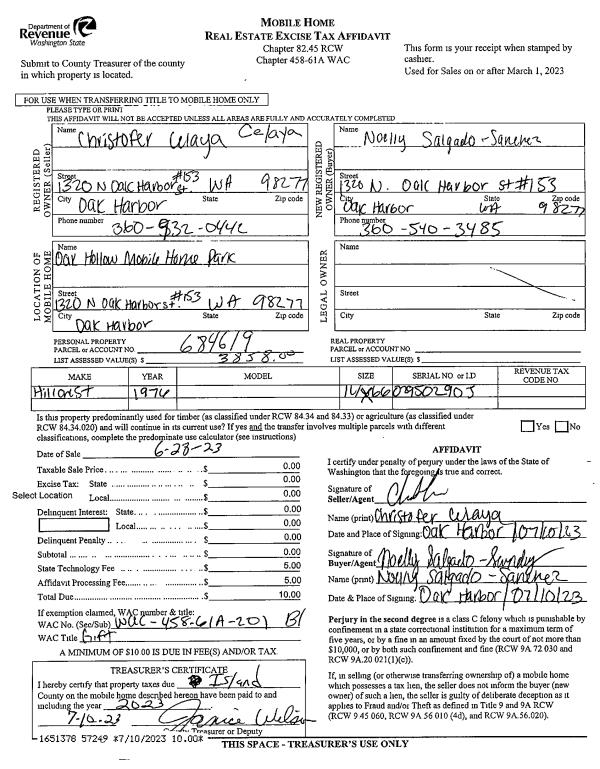 Department of
Revenue
Washington State
MOBILE HOME
REAL ESTATE EXCISE TAX AFFIDAVIT
Chapter 82.45 RCW
Chapter 458-61A WAC
Submit to County Treasurer of the county
in which property is located.
This form is your receipt when stamped by
cashier.
Used for Sales on or after March 1, 2023
FOR USE WHEN TRANSFERRING TITLE TO MOBILE HOME ONLY
PLEASE TYPE OR PRINT
THIS AFFIDAVIT WILL NOT BE ACCEPTED UNLESS ALL AREAS ARE FULLY AND ACCURATELY COMPLETED
REGISTERED OWNER (Seller)
Name
Christofer Celaya Celaya
Street
1320 N Oak Harbor st. #153 WA 98277
City State Zip code
Oak Harbor
Phone number
360-932-0442
NEW REGISTERED OWNER (Buyer)
Name
Noelly Salgado-Sanchez
Street
1320 N. Oak Harbor st #153
City State Zip code
Oak Harbor WA 98277
Phone number
360-540-3485
LOCATION OF MOBILE HOME
Name
Oak Hollow Mobile Home Park
Street
1320 N Oak Harbor st. #153 WA 98277
City State Zip code
Oak Harbor
LEGAL OWNER
Name
Street
City State Zip code
PERSONAL PROPERTY
PARCEL or ACCOUNT NO. 684619
LIST ASSESSED VALUE(S) $ 3858.00
REAL PROPERTY
PARCEL or ACCOUNT NO.
LIST ASSESSED VALUE(S) $
MAKE YEAR MODEL SIZE SERIAL NO. or I.D REVENUE TAX CODE NO
Hillcrest 1976 14x66 02950290J
Is this property predominantly used for timber (as classified under RCW 84.34 and 84.33) or agriculture (as classified under
RCW 84.34.020) and will continue in its current use? If yes and the transfer involves multiple parcels with different
classifications, complete the predominate use calculator (see instructions)
Yes No
Date of Sale 6-28-23
Taxable Sale Price $ 0.00
Excise Tax: State $ 0.00
Select Location Local $ 0.00
Delinquent Interest: State $ 0.00
Local $ 0.00
Delinquent Penalty $ 0.00
Subtotal $ 0.00
State Technology Fee $ 5.00
Affidavit Processing Fee $ 5.00
Total Due $ 10.00
If exemption claimed, WAC number & title:
WAC No. (Sec/Sub) WAC-458-61A-201 B1
WAC Title Gift
A MINIMUM OF $10.00 IS DUE IN FEE(S) AND/OR TAX.
TREASURER'S CERTIFICATE
I hereby certify that property taxes due Island
County on the mobile home described hereon have been paid to and
including the year 2023
7-10-23 Janice Wilson
Treasurer or Deputy
AFFIDAVIT
I certify under penalty of perjury under the laws of the State of
Washington that the foregoing is true and correct.
Signature of
Seller/Agent
Name (print) Christofer Celaya
Date and Place of Signing: Oak Harbor / 07/10/23
Signature of
Buyer/Agent Noelly Salgado-Sanchez
Name (print) Noelly Salgado-Sanchez
Date & Place of Signing. Oak Harbor / 07/10/23
Perjury in the second degree is a class C felony which is punishable by
confinement in a state correctional institution for a maximum term of
five years, or by a fine in an amount fixed by the court of not more than
$10,000, or by both such confinement and fine (RCW 9A 72 030 and
RCW 9A.20 021(1)(c)).
If, in selling (or otherwise transferring ownership of) a mobile home
which possesses a tax lien, the seller does not inform the buyer (new
owner) of such a lien, the seller is guilty of deliberate deception as it
applies to Fraud and/or Theft as defined in Title 9 and 9A RCW
(RCW 9 45 060, RCW 9A 56 010 (4d), and RCW 9A.56.020).
1651378 57249 *7/10/2023 10.00*
THIS SPACE - TREASURER'S USE ONLY